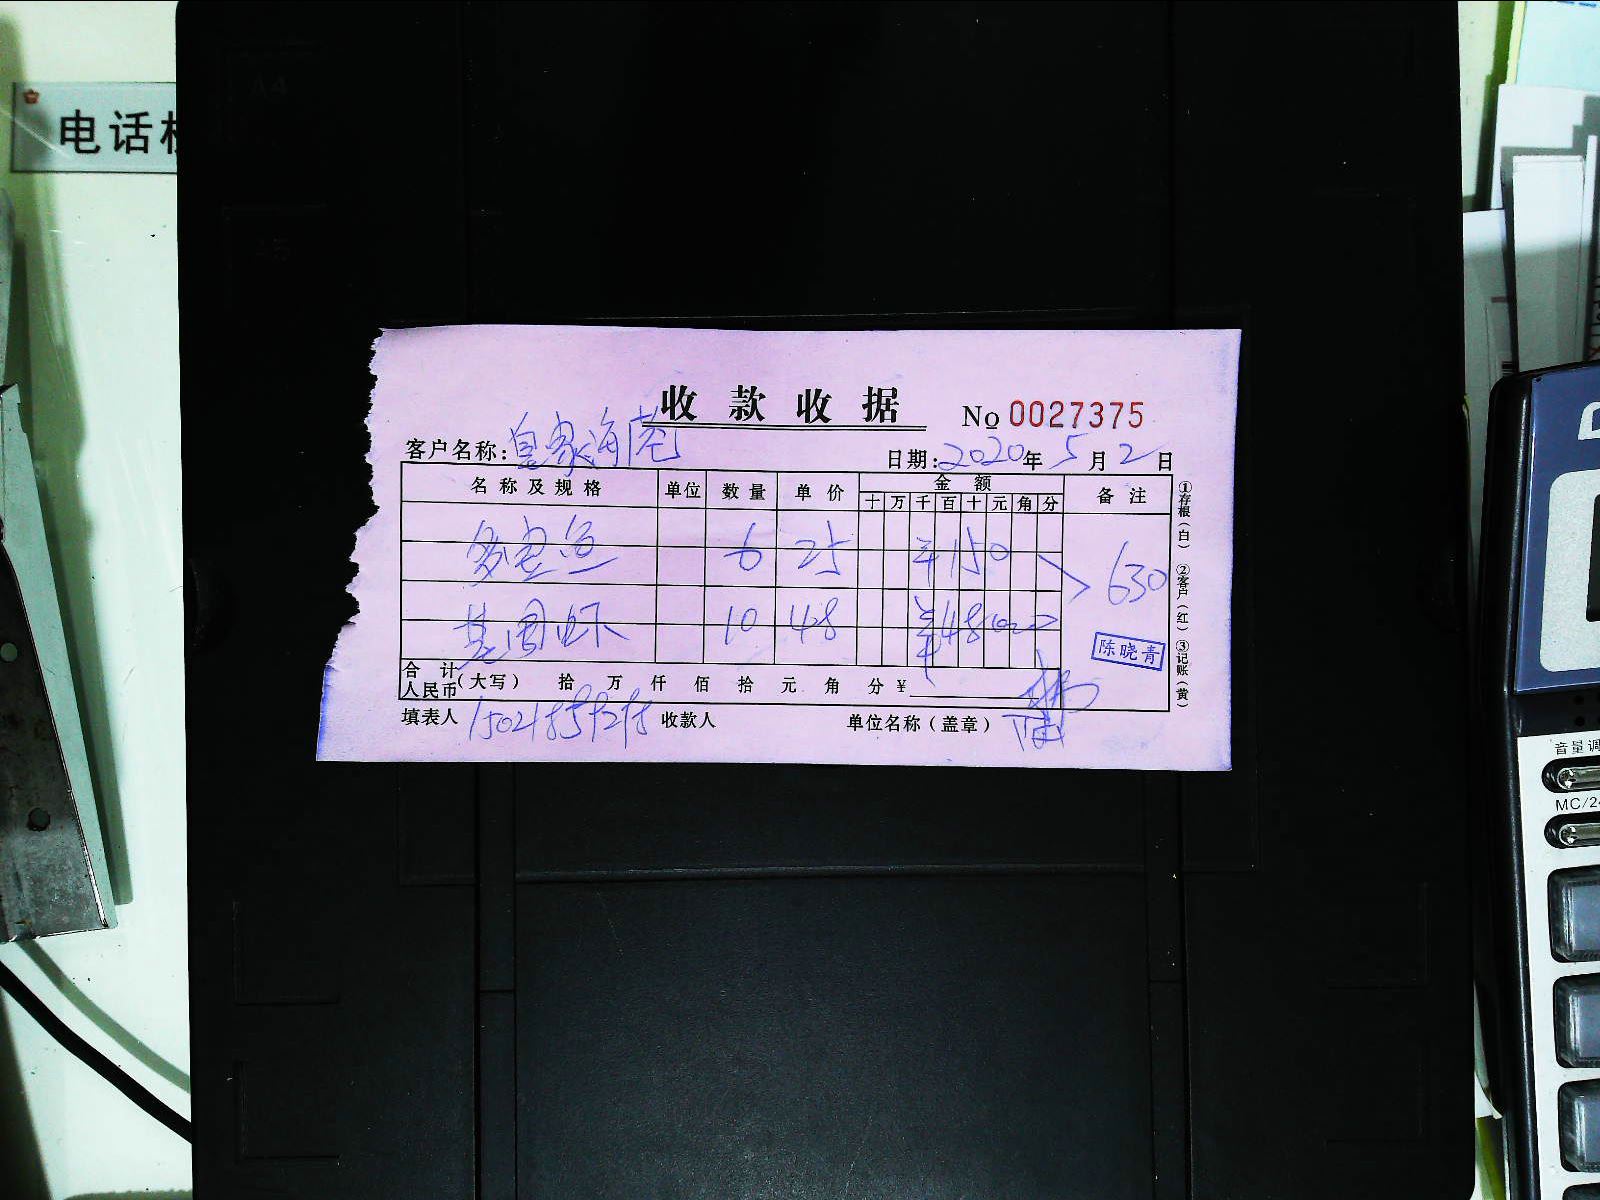 A4
电话机
A5
收款收据 No 0027375
客户名称:皇家海苑 日期:2020年5月2日
名称及规格 单位 数量 单价 金额 备注
十 万 千 百 十 元 角 分
多宝鱼 6 25 ¥150
630
基围虾 10 48 ¥480
陈晓青
合计人民币(大写) 拾 万 仟 佰 拾 元 角 分 ¥
填表人 收款人 单位名称(盖章)
①存根(白) ②客户(红) ③记账(黄)
音量调
MC/24